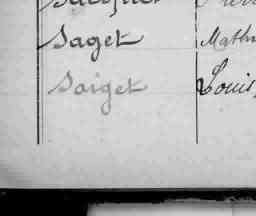 Saget Math
Saiget Louis